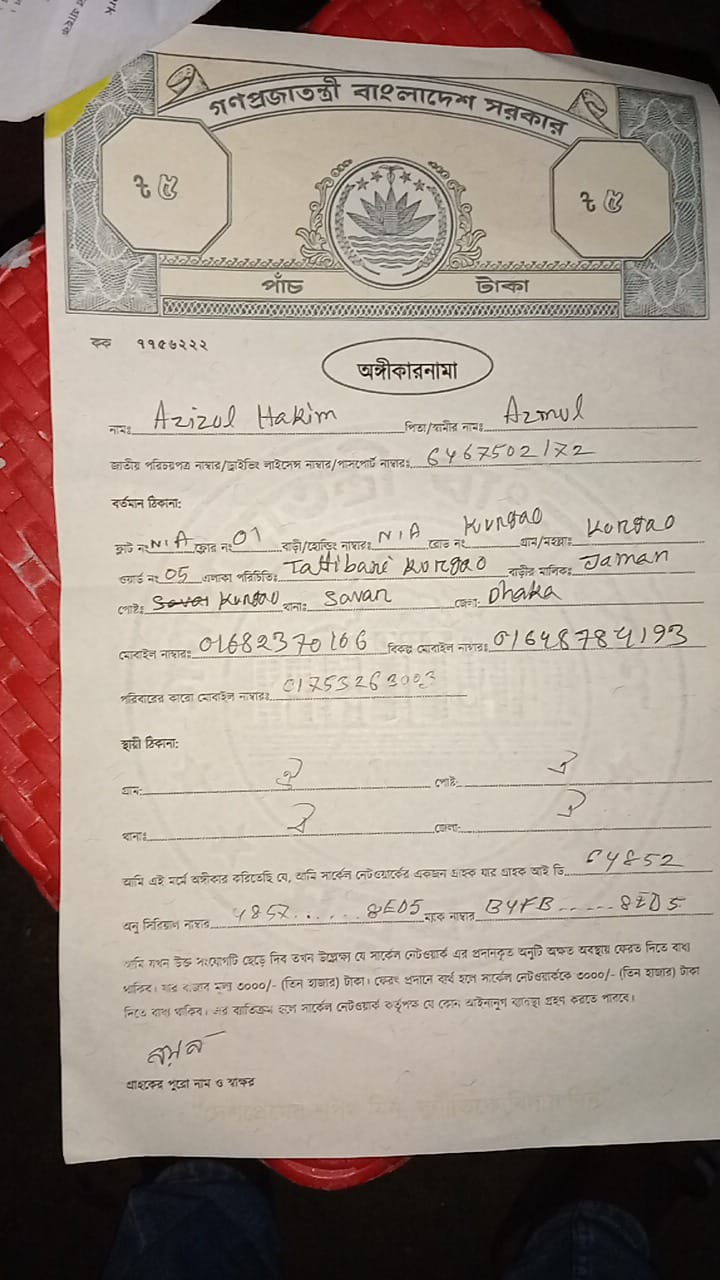 গণপ্রজাতন্ত্রী বাংলাদেশ সরকার
৳ ৫ ৳ ৫
পাঁচ টাকা
কক ৭৭৫৬২২২
অঙ্গীকারনামা
নামঃ Azizul Hakim পিতা/স্বামীর নামঃ Azmul
জাতীয় পরিচয়পত্র নাম্বার/ড্রাইভিং লাইসেন্স নাম্বার/পাসপোর্ট নাম্বারঃ 6467502172
বর্তমান ঠিকানা:
ফ্লাট নং N/A ফ্লোর নং 01 বাড়ী/হোল্ডিং নাম্বারঃ N/A রোড নং Kurgao গ্রাম/মহল্লাঃ Kurgao
ওয়ার্ড নং 05 এলাকা পরিচিতিঃ Kurgao বাড়ীর মালিকঃ Jaman
পোষ্টঃ Kurgao থানাঃ Savar জেলা: Dhaka
মোবাইল নাম্বারঃ 01682370166 বিকল্প মোবাইল নাম্বারঃ 01648784193
পরিবারের কারো মোবাইল নাম্বারঃ
স্থায়ী ঠিকানা:
গ্রাম: ঐ পোষ্ট: ঐ
থানাঃ ঐ জেলা: ঐ
আমি এই মর্মে অঙ্গীকার করিতেছি যে, আমি সার্কেল নেটওয়ার্কের একজন গ্রাহক যার গ্রাহক আই ডি 64852
অনু সিরিয়াল নাম্বার 4857......8ED5 ম্যাক নাম্বার B4FB.....8ED5
আমি যখন উক্ত সংযোগটি ছেড়ে দিব তখন উল্লেক্ষ্য যে সার্কেল নেটওয়ার্ক এর প্রদানকৃত অনুটি অক্ষত অবস্থায় ফেরত দিতে বাধ্য
থাকিব। যার বাজার মূল্য ৩০০০/- (তিন হাজার) টাকা। ফেরৎ প্রদানে ব্যর্থ হলে সার্কেল নেটওয়ার্ককে ৩০০০/- (তিন হাজার) টাকা
দিতে বাধ্য থাকিব। এর ব্যতিক্রম হলে সার্কেল নেটওয়ার্ক কর্তৃপক্ষ যে কোন আইনানুগ ব্যবস্থা গ্রহণ করতে পারবে।
গ্রাহকের পুরো নাম ও স্বাক্ষর